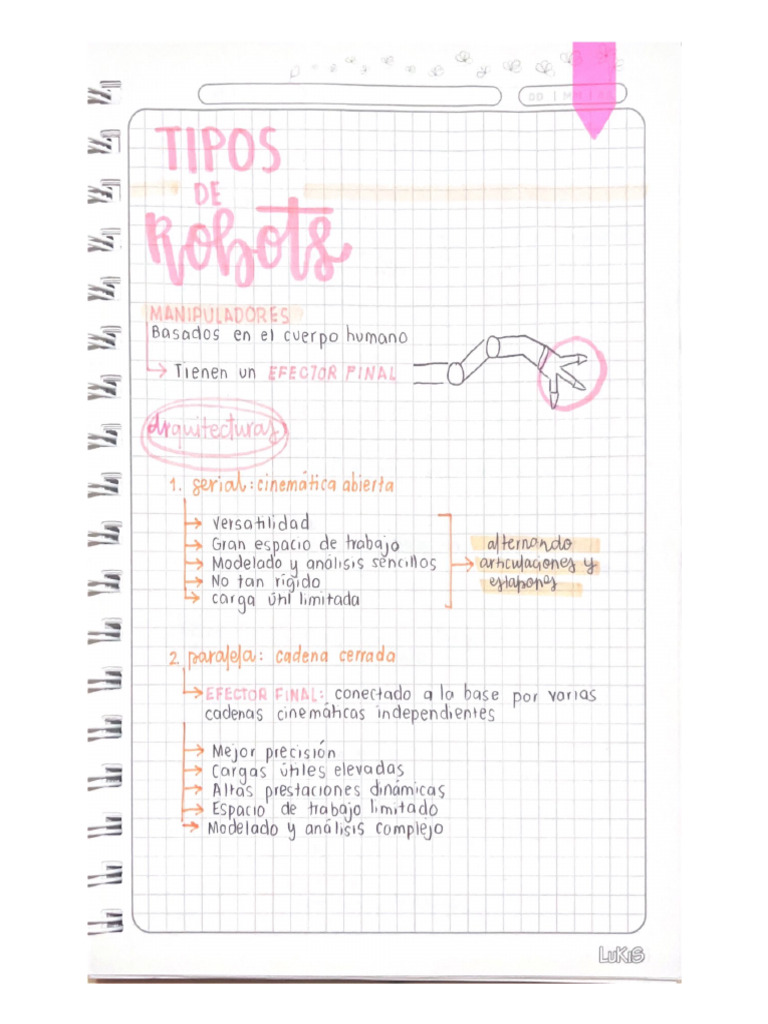 DD | MM |
TIPOS
DE
Robots
MANIPULADORES
Basados en el cuerpo humano
Tienen un EFECTOR FINAL
Arquitecturas
1. serial: cinemática abierta
Versatilidad
Gran espacio de trabajo
Modelado y análisis sencillos
No tan rígido
carga útil limitada
alternando
articulaciones y
eslabones
2. paralela: cadena cerrada
EFECTOR FINAL: conectado a la base por varias
cadenas cinemáticas independientes
Mejor precisión
Cargas útiles elevadas
Altas prestaciones dinámicas
Espacio de trabajo limitado
Modelado y análisis complejo
LUKIS